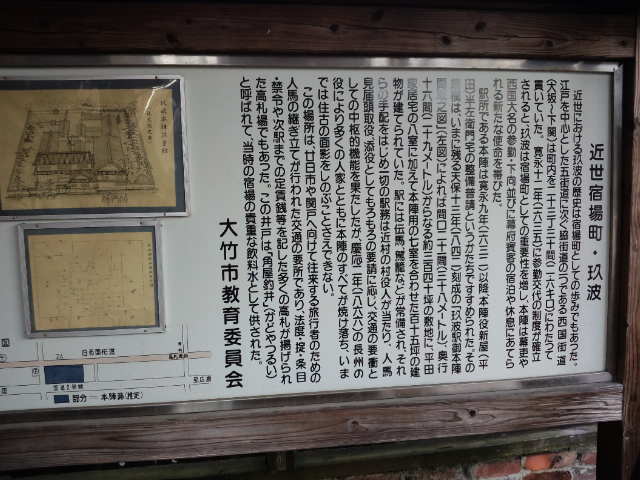 近世宿場町・玖波
近世における玖波の歴史は宿場町としての歩みでもあった。
江戸を中心とした五街道に次ぐ脇街道の一つである西国街道
(大坂〜下関)は町内を二十三丁三十間(二・六キロ)にわたって
貫いていた。寛永十二年(一六三五)に参勤交代の制度が確立
されると、玖波は宿場町としての重要性を増し、本陣は幕吏や
西国大名の参勤・下向並びに幕府賓客の宿泊や休息にあてら
れる新たな使命を帯びた。
駅所である本陣は寛永九年(一六三二)以降、本陣役新屋(平
田)半左衛門宅の整備普請というかたちですすめられた。その
規模は、いまに残る天保十三年(一八四二)刻成の「玖波駅御本陣
之図」(左図)によれば間口二十間(三十八メートル)奥行
十六間(二十九メートル)からなる約三百四十坪の敷地に、平田
家居宅の八室に加えて本陣用の七室を合わせた百十五坪の建
物が建てられていた。駅には伝馬、駕籠などが常備され、それ
らの手配をはじめ一切の駅務は近村の村役人が当たり、人馬
見届頭取役、添役としてもろもろの要請に応じ、交通の要衝と
しての中枢的機能を果たしたが、慶応二年(一八六六)の長州の
役により多くの人家とともに本陣のすべてが焼け落ち、いま
では往古の面影をしのぶことさえできない。
この場所は、廿日市や関戸へ向けて往来する旅行者のための
人馬の継ぎ立てが行われた交通の要所であり、法度・掟・条目
・禁令や次駅までの定賃銭等を記した多くの高札が掲げられ
た高札場でもあった。この井戸は、「角屋釣井」(かどやつるい)
と呼ばれて、当時の宿場の貴重な飲料水として供された。
大竹市教育委員会
旧西国街道
国道2号線
至広島
部分 ― 本陣跡(推定)